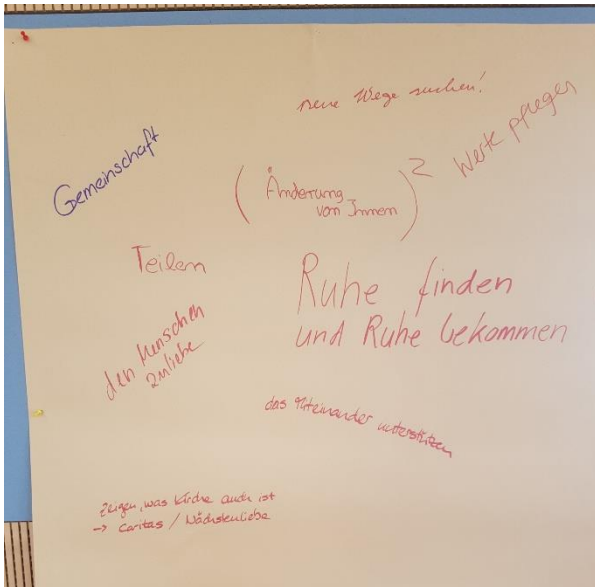 neue Wege suchen!
Werte pflegen
Gemeinschaft
(Änderung
von Innen)²
Teilen
Ruhe finden
und Ruhe bekommen
den Menschen
zuliebe
das Miteinander unterstützen
zeigen, was Kirche auch ist
-> Caritas / Nächstenliebe